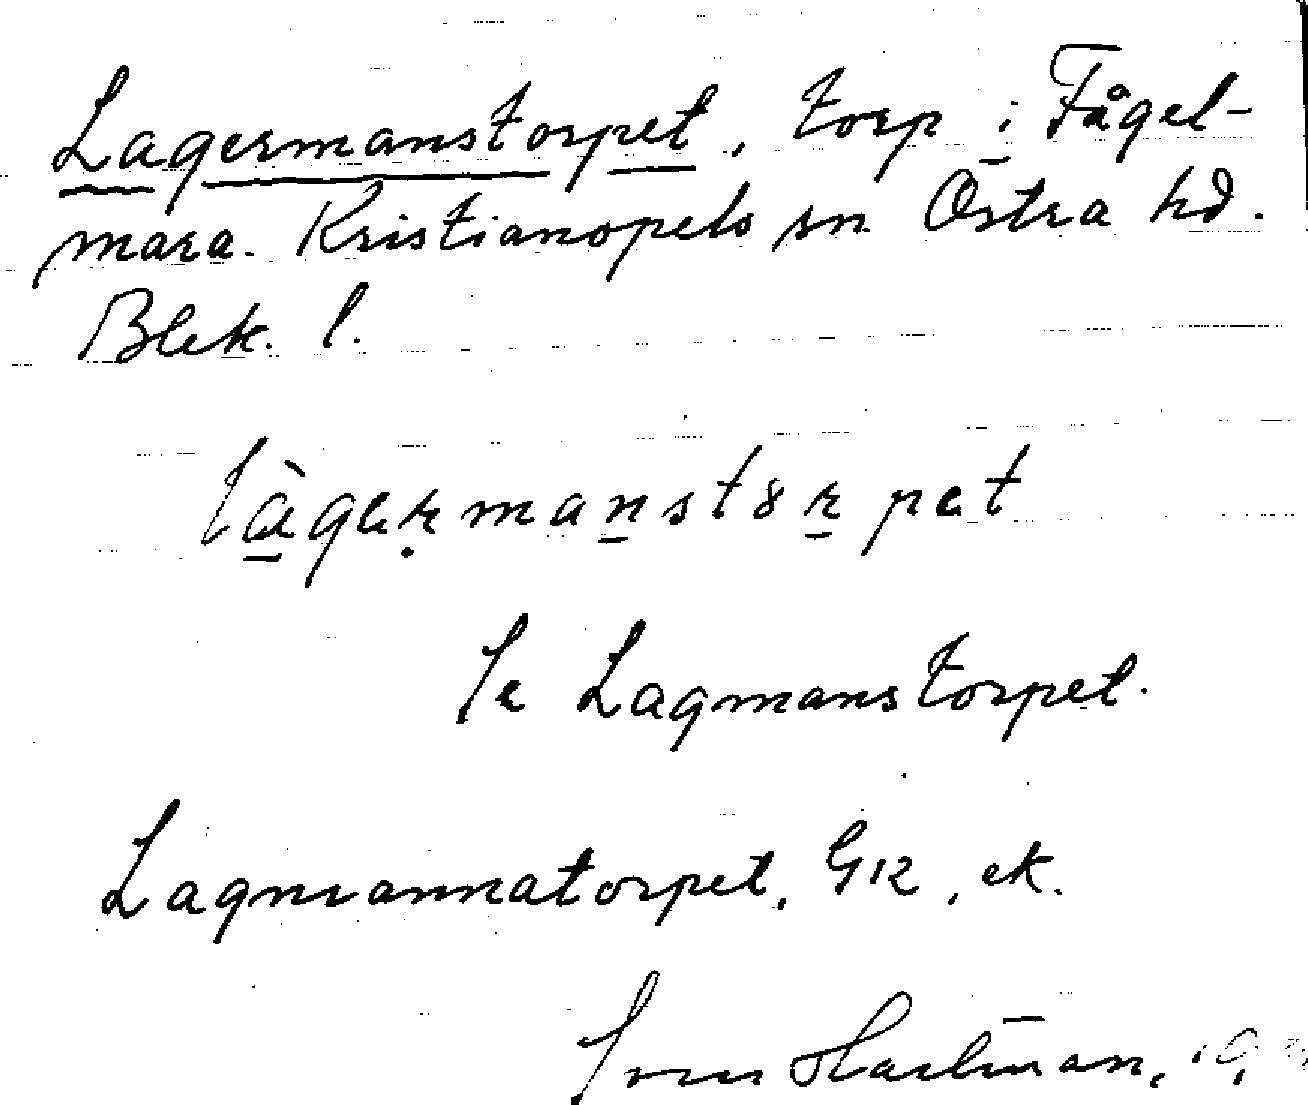 Lagermanstorpet, torp i Fågel-
mara. Kristianopels sn Östra hd.
Blek. l.
làgermanstorpet
Se Lagmanstorpet.
Lagmannatorpet. GK, ek.
Sven Hartman, 19